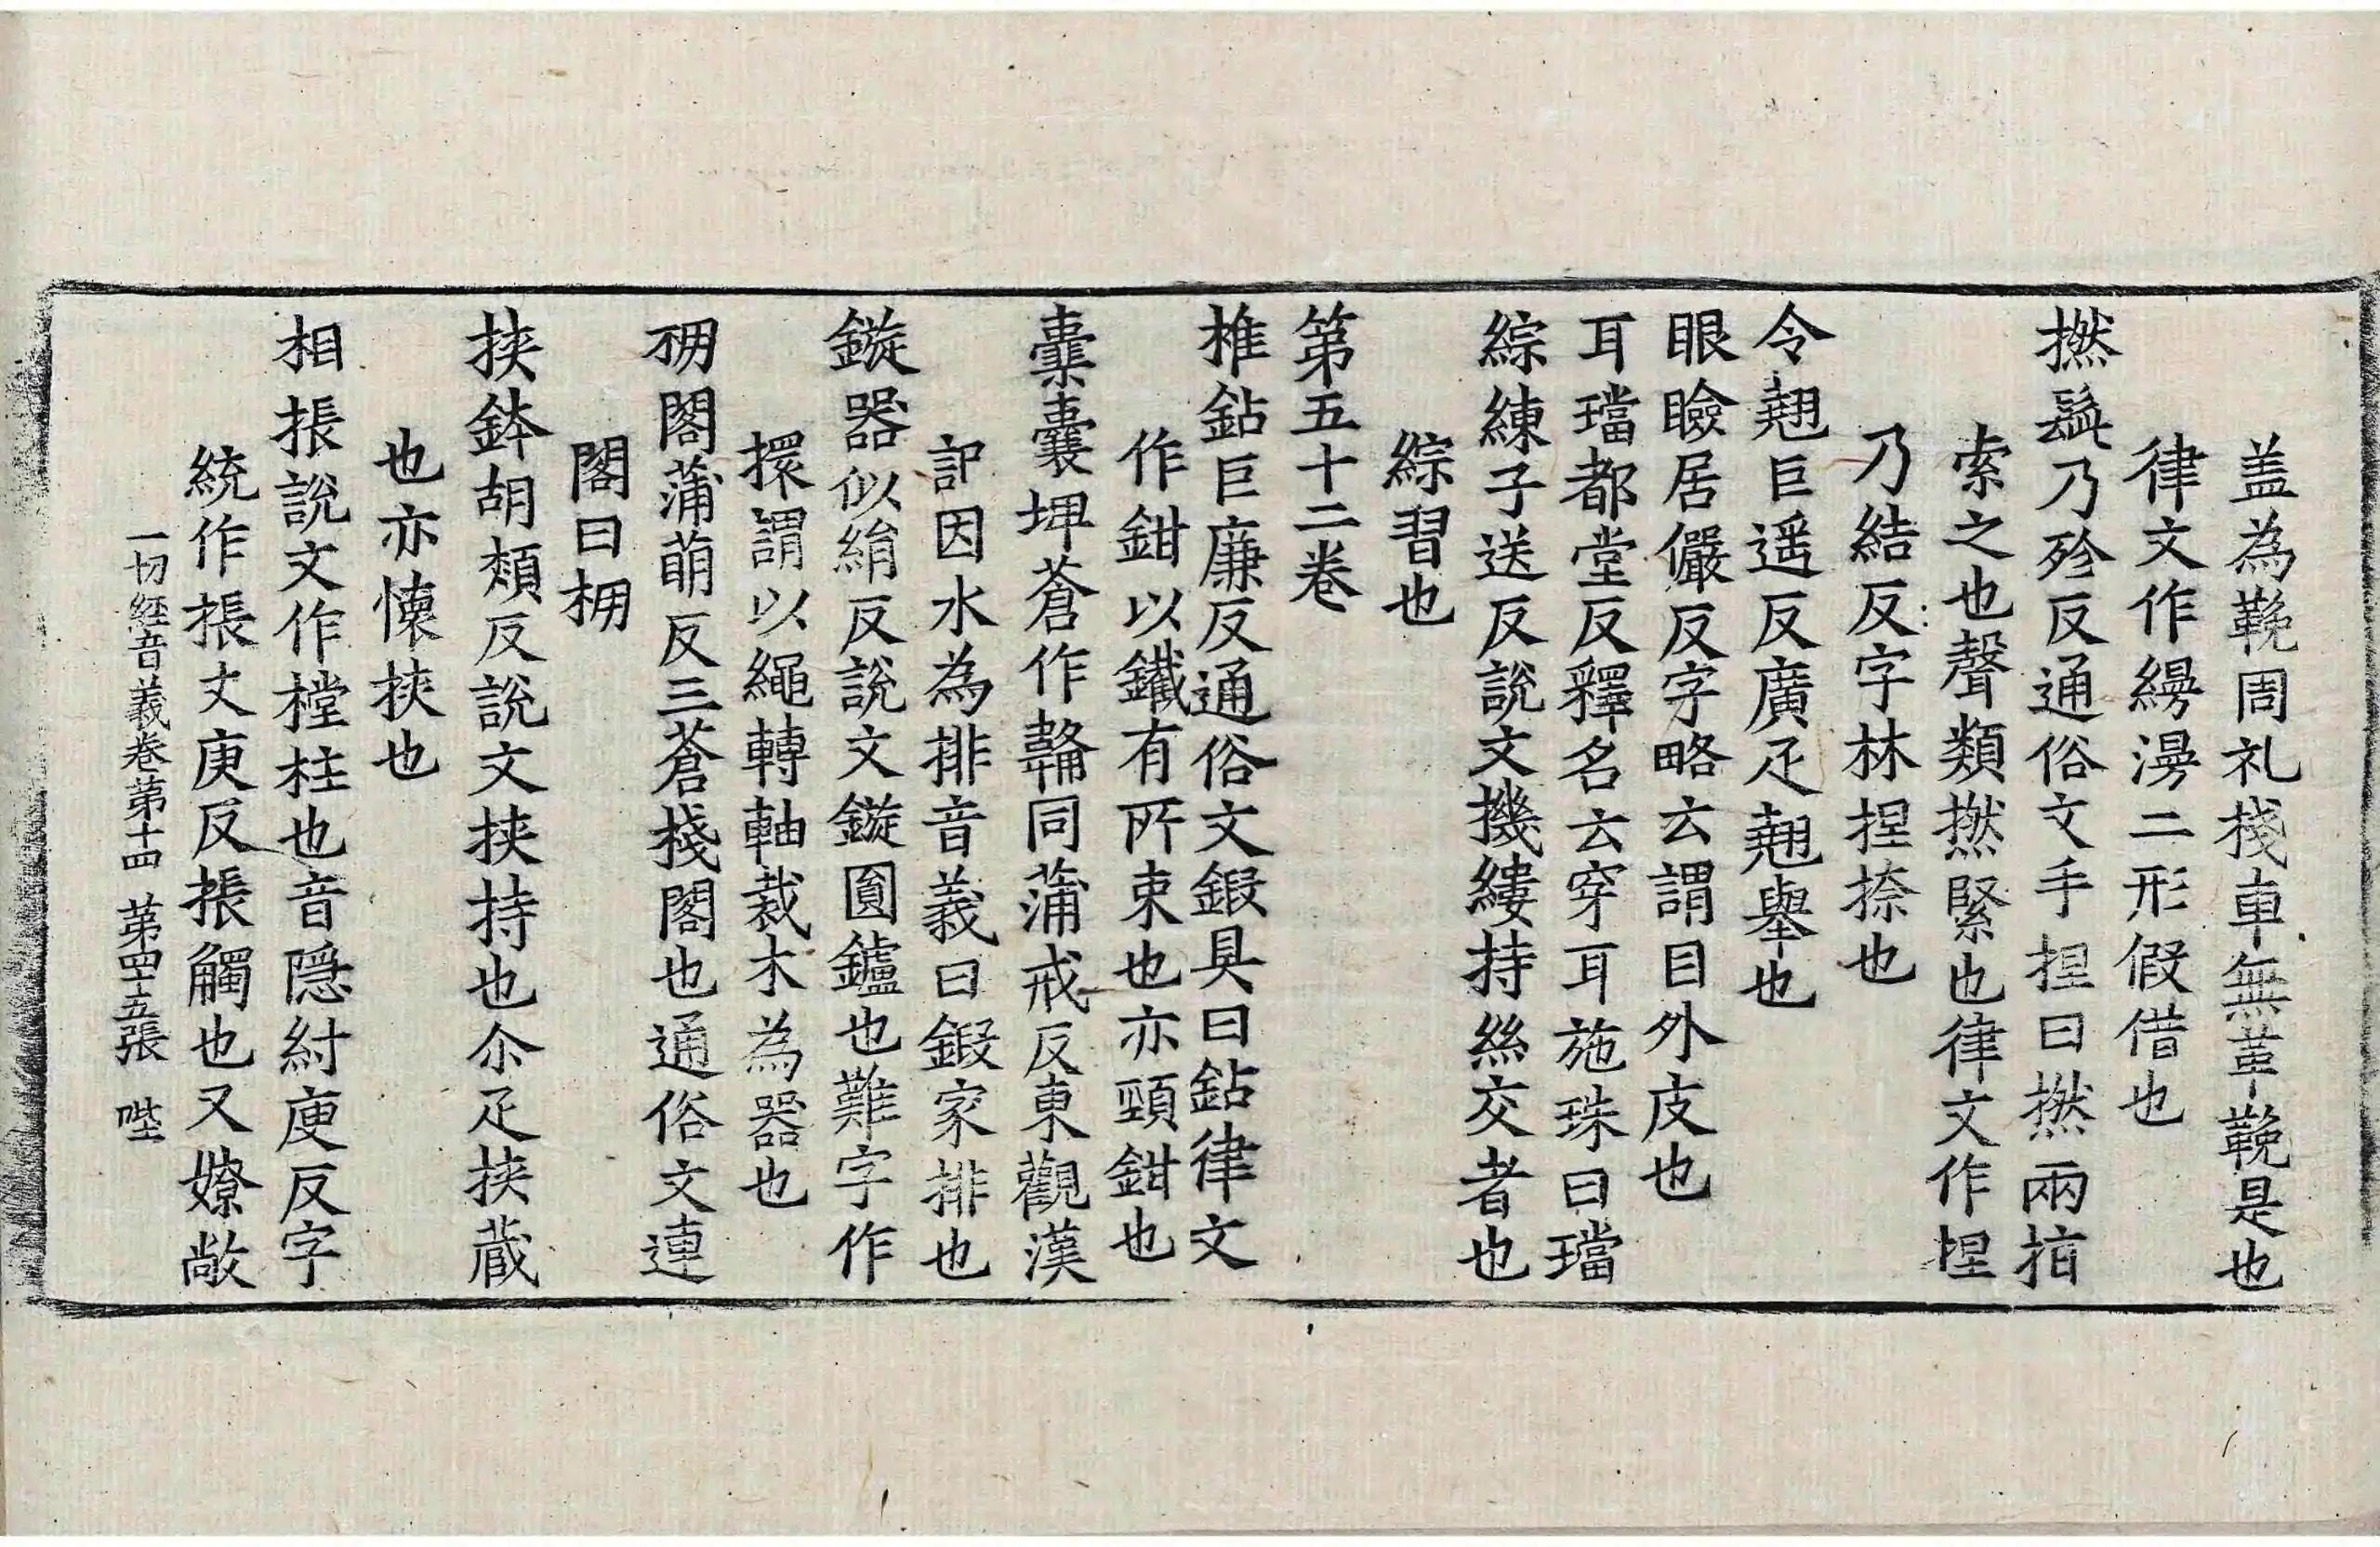 盖為鞔周礼棧車無革鞔是也
律文作縵漫二形假借也
撚髭乃殄反通俗文手捏曰撚兩指
索之也聲類撚緊也律文作捏
乃結反字林捏捺也
令翹巨遥反廣疋翹舉也
眼瞼居儼反字略云謂目外皮也
耳璫都堂反釋名云穿耳施珠曰璫
綜練子送反説文機縷持絲交者也
綜習也
第五十二卷
椎鉆巨廉反通俗文鍛具曰鉆律文
作鉗以鐵有所束也亦頸鉗也
橐囊埤蒼作韛同蒲戒反東觀漢
記因水為排音義曰鍛家排也
鏇器似絹反説文鏇圓鑪也難字作
擐謂以繩轉軸裁木為器也
棚閣蒲萌反三蒼棧閣也通俗文連
閣曰棚
挾鉢胡頰反説文挾持也尒疋挾蔵
也亦懷挾也
相棖説文作樘柱也音隱紂庚反字
統作棖丈庚反棖觸也又嫽敞
一切經音義卷第十四 第四十五張 唑